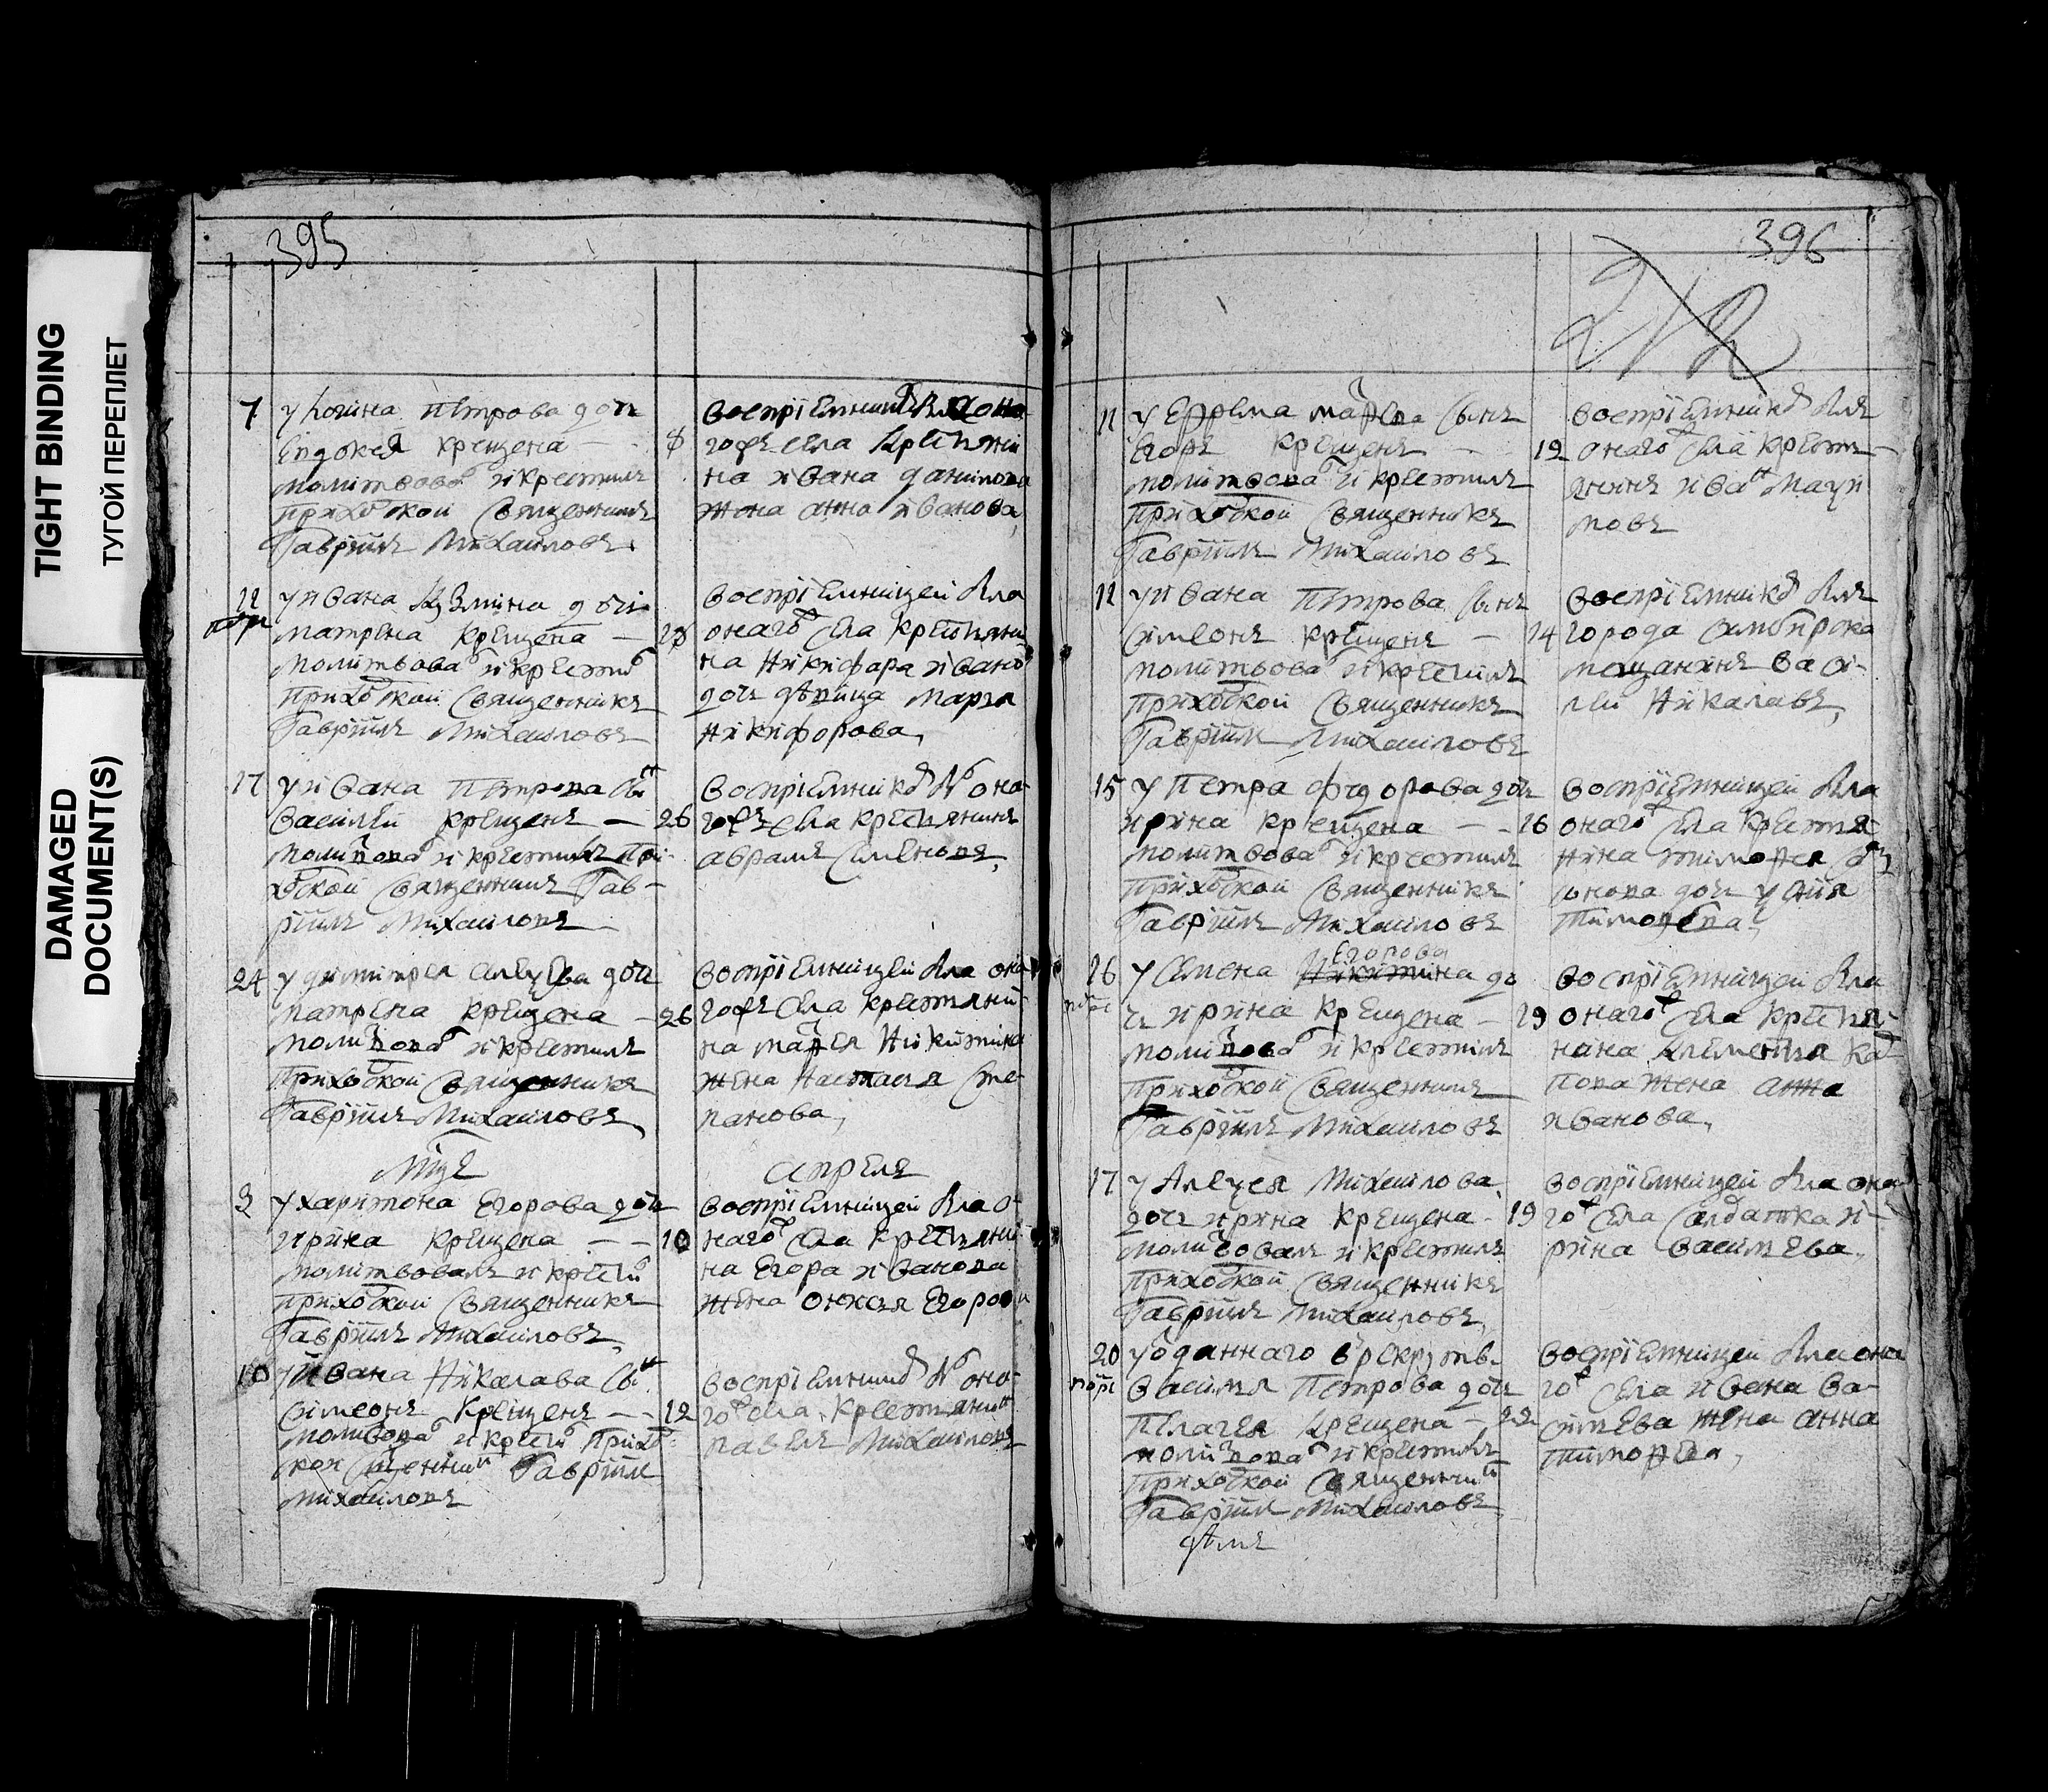 TIGHT BINDING
ТУГОЙ ПЕРЕПЛЕТ
DAMAGED
DOCUMENT(S)
395
7 у логина петрова дочь
Евдокея крещена —
молитвовал и крестилъ
приходской священникъ
Гавріилъ Михаиловъ
8
гожъ села крестьяни
на ивана данилова
жена анна иванова
12 у ивана кузмина дочь
матрена крещена —
молитвовал и крестил
приходской священникъ
Гавріилъ Михаиловъ
воспріемницей была
онаго села крестьяни
на никифара иванов
дочь девица марья
никифорова,
17 у ивана петрова сын
василей крещенъ —
молитвовал и крестилъ при-
ходской священникъ Гав-
ріилъ Михаиловъ
воспріемником был она-
26 гожъ села крестьянинъ
аврамъ семеновъ,
24 у димитрея алексева дочь
матрена крещена —
молитвовал и крестилъ
приходской священникъ
Гавріилъ Михаиловъ
воспріемницей была она
26 гожъ села крестьяни-
на матвея никитина
жена настасья сте-
панова,
Мцъ апреля
3 у харитона Егорова дочь
ирина крещена —
молитвовалъ и крестил
приходской священникъ
Гавріилъ Михаиловъ
воспріемницей была о-
10 наго села крестьяни-
на Егора иванова
жена Егоров
10 у ивана николава сын
симеонъ крещенъ —
молитвовал и крестил приход
ской священник Гавріилъ
Михаиловъ
воспріемник был она-
12 го села крестьянин
павелъ Михаиловъ
396
11 у Ефрема матвева сынъ
Егоръ крещенъ —
молитвовал и крестилъ
приходской священникъ
Гавріилъ Михаиловъ
воспріемником былъ
12 онаго села крестья-
нинъ иван
мовъ
12 у ивана петрова сынъ
симеонъ крещенъ —
молитвовал и крестилъ
приходской священникъ
Гавріилъ Михаиловъ
воспріемником былъ
14 города симбирска
мещанинъ васи-
лей никалавъ,
15 у петра федорова дочь
ирина крещена —
молитвовал и крестилъ
приходской священникъ
Гавріилъ Михаиловъ
воспріемницей была
16 онаго села крестья-
нина тимофея сем
ьнова дочь
тимофева,
Егорова
16 у семена никитина до
чь ирина крещена —
молитвовал и крестилъ
приходской священникъ
Гавріилъ Михаиловъ
воспріемницей была
19 онаго села крестья-
нина клементья кар
пова жена анна
иванова,
17 у Алексея Михаилова
дочь ирина крещена —
молитвовалъ и крестилъ
приходской священникъ
Гавріилъ Михаиловъ
воспріемницей была она
19 го села салдатка и-
рина васильева,
20 у отданнаго в рекруты
василья петрова дочь
пелагея крещена —
молитвовал и крестилъ
приходской священник
Гавріилъ Михаиловъ
воспріемницей была она
22 го села ивана ва-
сильева жена анна
тимофева,